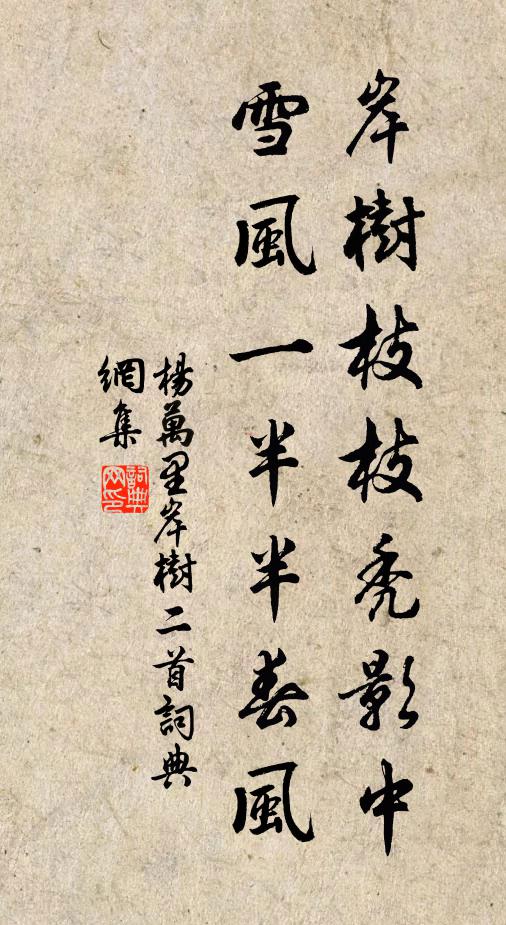 岸樹枝枝秃影中
雪風一半半春風
楊萬里岸樹二首詞典
網集
詞典
网印